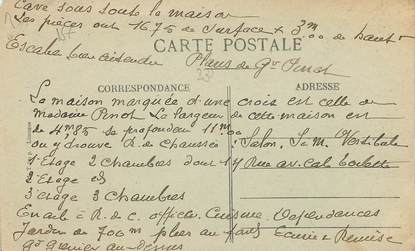 Cave sous toute la maison
Les pièces ont 16.75 de surface + 3m00 de haut
Escalier pour descendre Plans de Gd
CARTE POSTALE
CORRESPONDANCE ADRESSE
La maison marquée d'une croix est celle de
Madame Pinot La largeur de cette maison est
de 4m85 sa profondeur 11m00
on y trouve R. de Chaussée: Salon, S.M. Vestibule
1er Etage 2 Chambres dont 1 Rue
2e Etage id
3e Etage 3 Chambres
En aile = R. de C. office, Cuisine, Dépendances
Jardin de 700m plus au fond Ecurie & Remise
Gd Grenier au-dessus